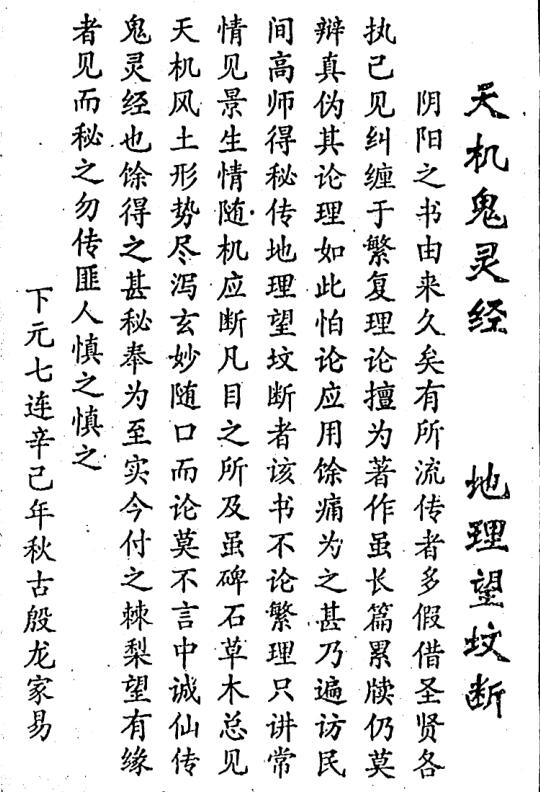 天机鬼灵经　地理望坟断
阴阳之书由来久矣有所流传者多假借圣贤各
执己见纠缠于繁复理论擅为著作虽长篇累牍仍莫
辩真伪其论理如此怕论应用馀痛为之甚乃遍访民
间高师得秘传地理望坟断者该书不论繁理只讲常
情见景生情随机应断凡目之所及虽碑石草木总见
天机风土形势尽泻玄妙随口而论莫不言中诚仙传
鬼灵经也馀得之甚秘奉为至实今付之棘梨望有缘
者见而秘之勿传匪人慎之慎之
下元七连辛己年秋古殷龙家易